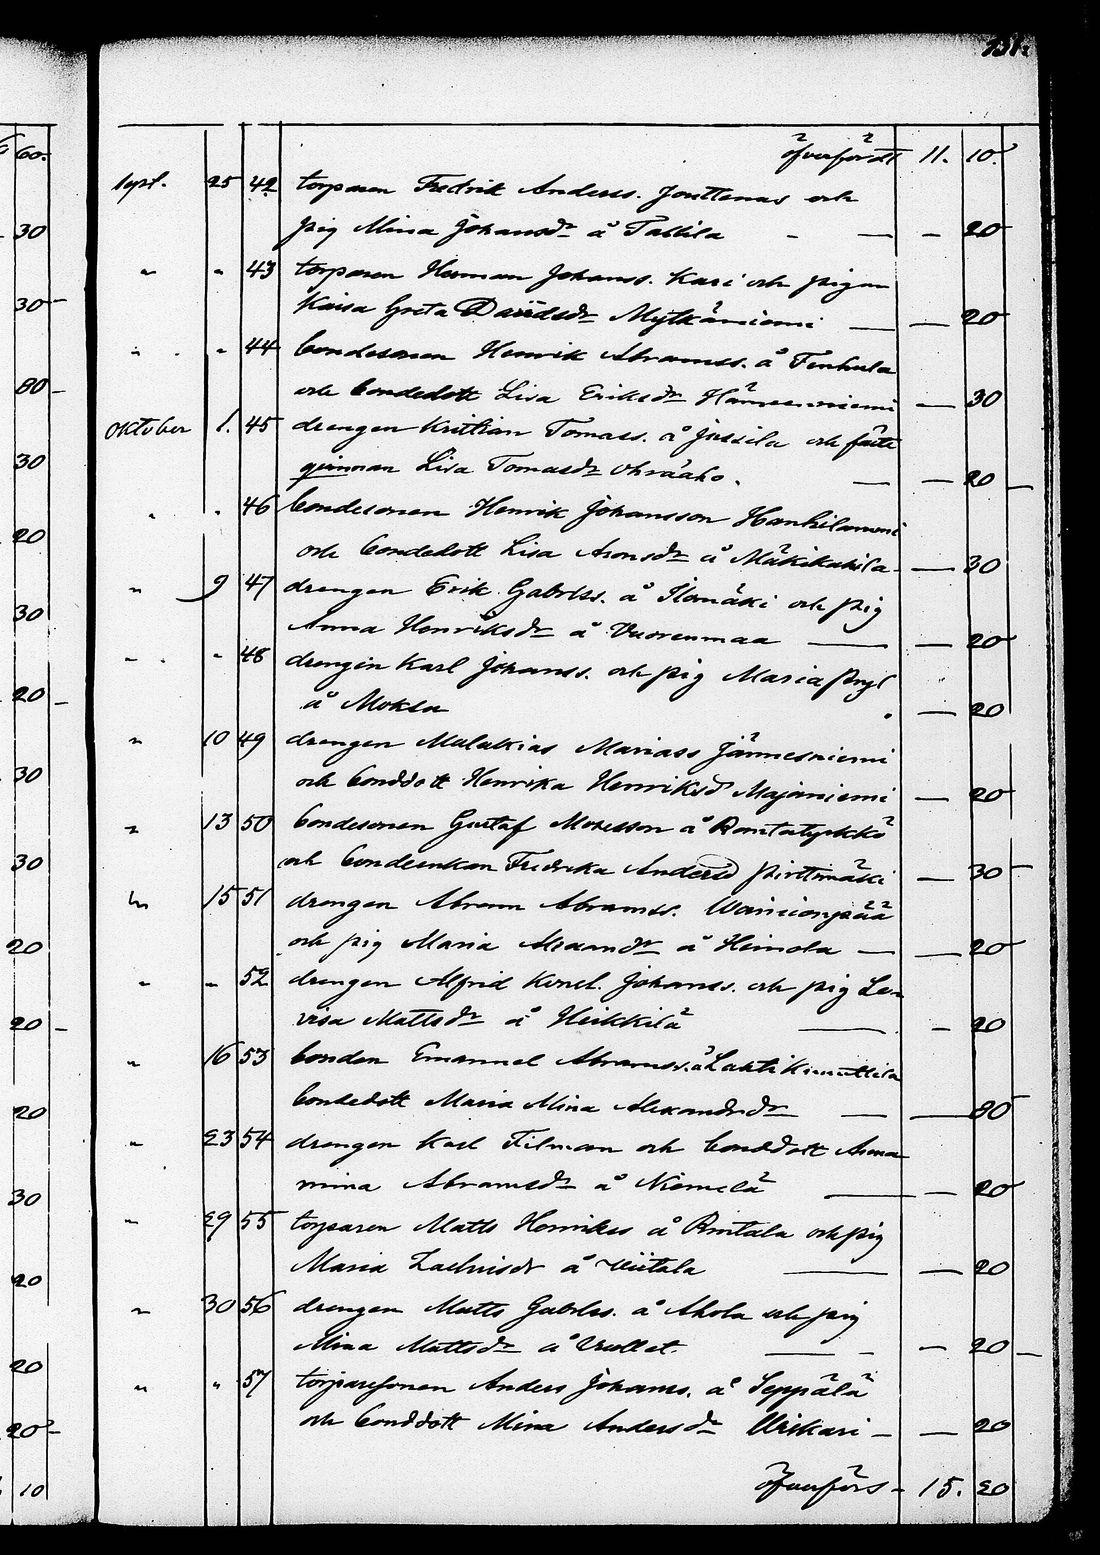 131.
öfverfördt 11. 10.
Sept. 25 42 torparen Fredrik Anderss. Jouttenus och
pig Mina Johansdr å Tallila - — - 20
" " 43 torparen Herman Johanss. Kari och pigan
Kaisa Greta Davidsdr Mytkäniemi — - 20
" " 44 bondesonen Henrik Abramss. å Finhula
och bondedott Lisa Eriksdr Hännesniemi — 30
Oktober 1. 45 drengen Kristian Tomass. å Jussila och
qvinnan Lisa Tomasdr Ohraaho. — - 20
" " 46 bondesonen Henrik Johansson Hanhilammi
och bondedott Lisa Aronsdr å Mäkikahila — 30
" 9 47 drengen Erik Gabrlss. å Ilomäki och pig
Anna Henriksdr å Vuorenmaa — - 20
" " 48 drengen Karl Johanss. och pig Maria
å Moksu — 20
" 10 49 drengen Malakias Mariass Jännesniemi
och bonddott Henrika Henriksd Majaniemi — 20
" 13 50 bondesonen Gustaf Mosesson å Rantatyckkö
och bondeenkan Fredrika Andersd Pirttimäki — 30
" 15 51 drengen Abram Abramss. Wainionpää
och pig Maria Alexandr å Heimola — - 20
" " 52 drengen Alfrid Kornel. Johanss. och pig Lo-
visa Mattsdr å Heikkilä — - 20
" 16 53 bonden Emanuel Abramss. å Lahti Kimattila
bondedott Maria Mina Alexandrsdr — — 80
" 23 54 drengen Karl Filman och bonddott Anna
mina Abramsdr å Niemelä — - 20
" 29 55 torparen Matts Henrikss å Rintala och pig
Maria Zachrisdr å Viitala — - 20
" 30 56 drengen Matts Gabrlss. å Ahola och pig
Mina Mattsdr å — - 20
" " 57 torparesonen Anders Johanss. å Seppälä
och bonddott Mina Andersdr Urikari - — 20
öfverförs - 15. 20